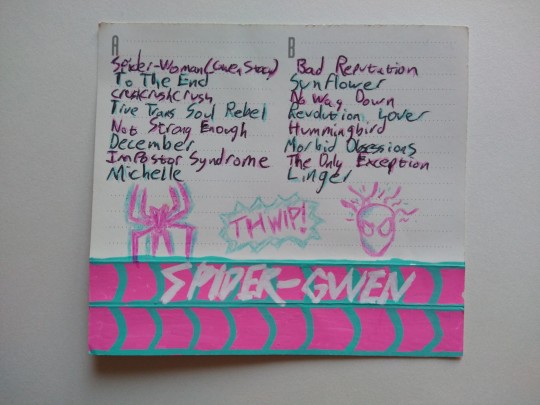 A
Spider-Woman (Gwen Stacy)
To The End
crushcrushcrush
True Trans Soul Rebel
Not Strong Enough
December
Impostor Syndrome
Michelle
B
Bad Reputation
Sunflower
No Way Down
Revolution Lover
Hummingbird
Morbid Obsessions
The Only Exception
Linger
THWIP!
SPIDER-GWEN